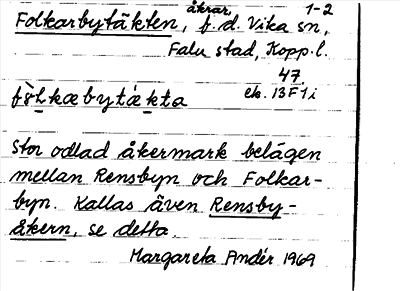 åkrar, 1-2
Folkarbytäkten, f.d. Vika sn,
Falu stad, Kopp.l.
47.
fòlkæbytǽkta ek. 13F1i
Stor odlad åkermark belägen
mellan Rensbyn och Folkar-
byn. Kallas även Rensby-
åkern, se detta.
Margareta Andér 1969